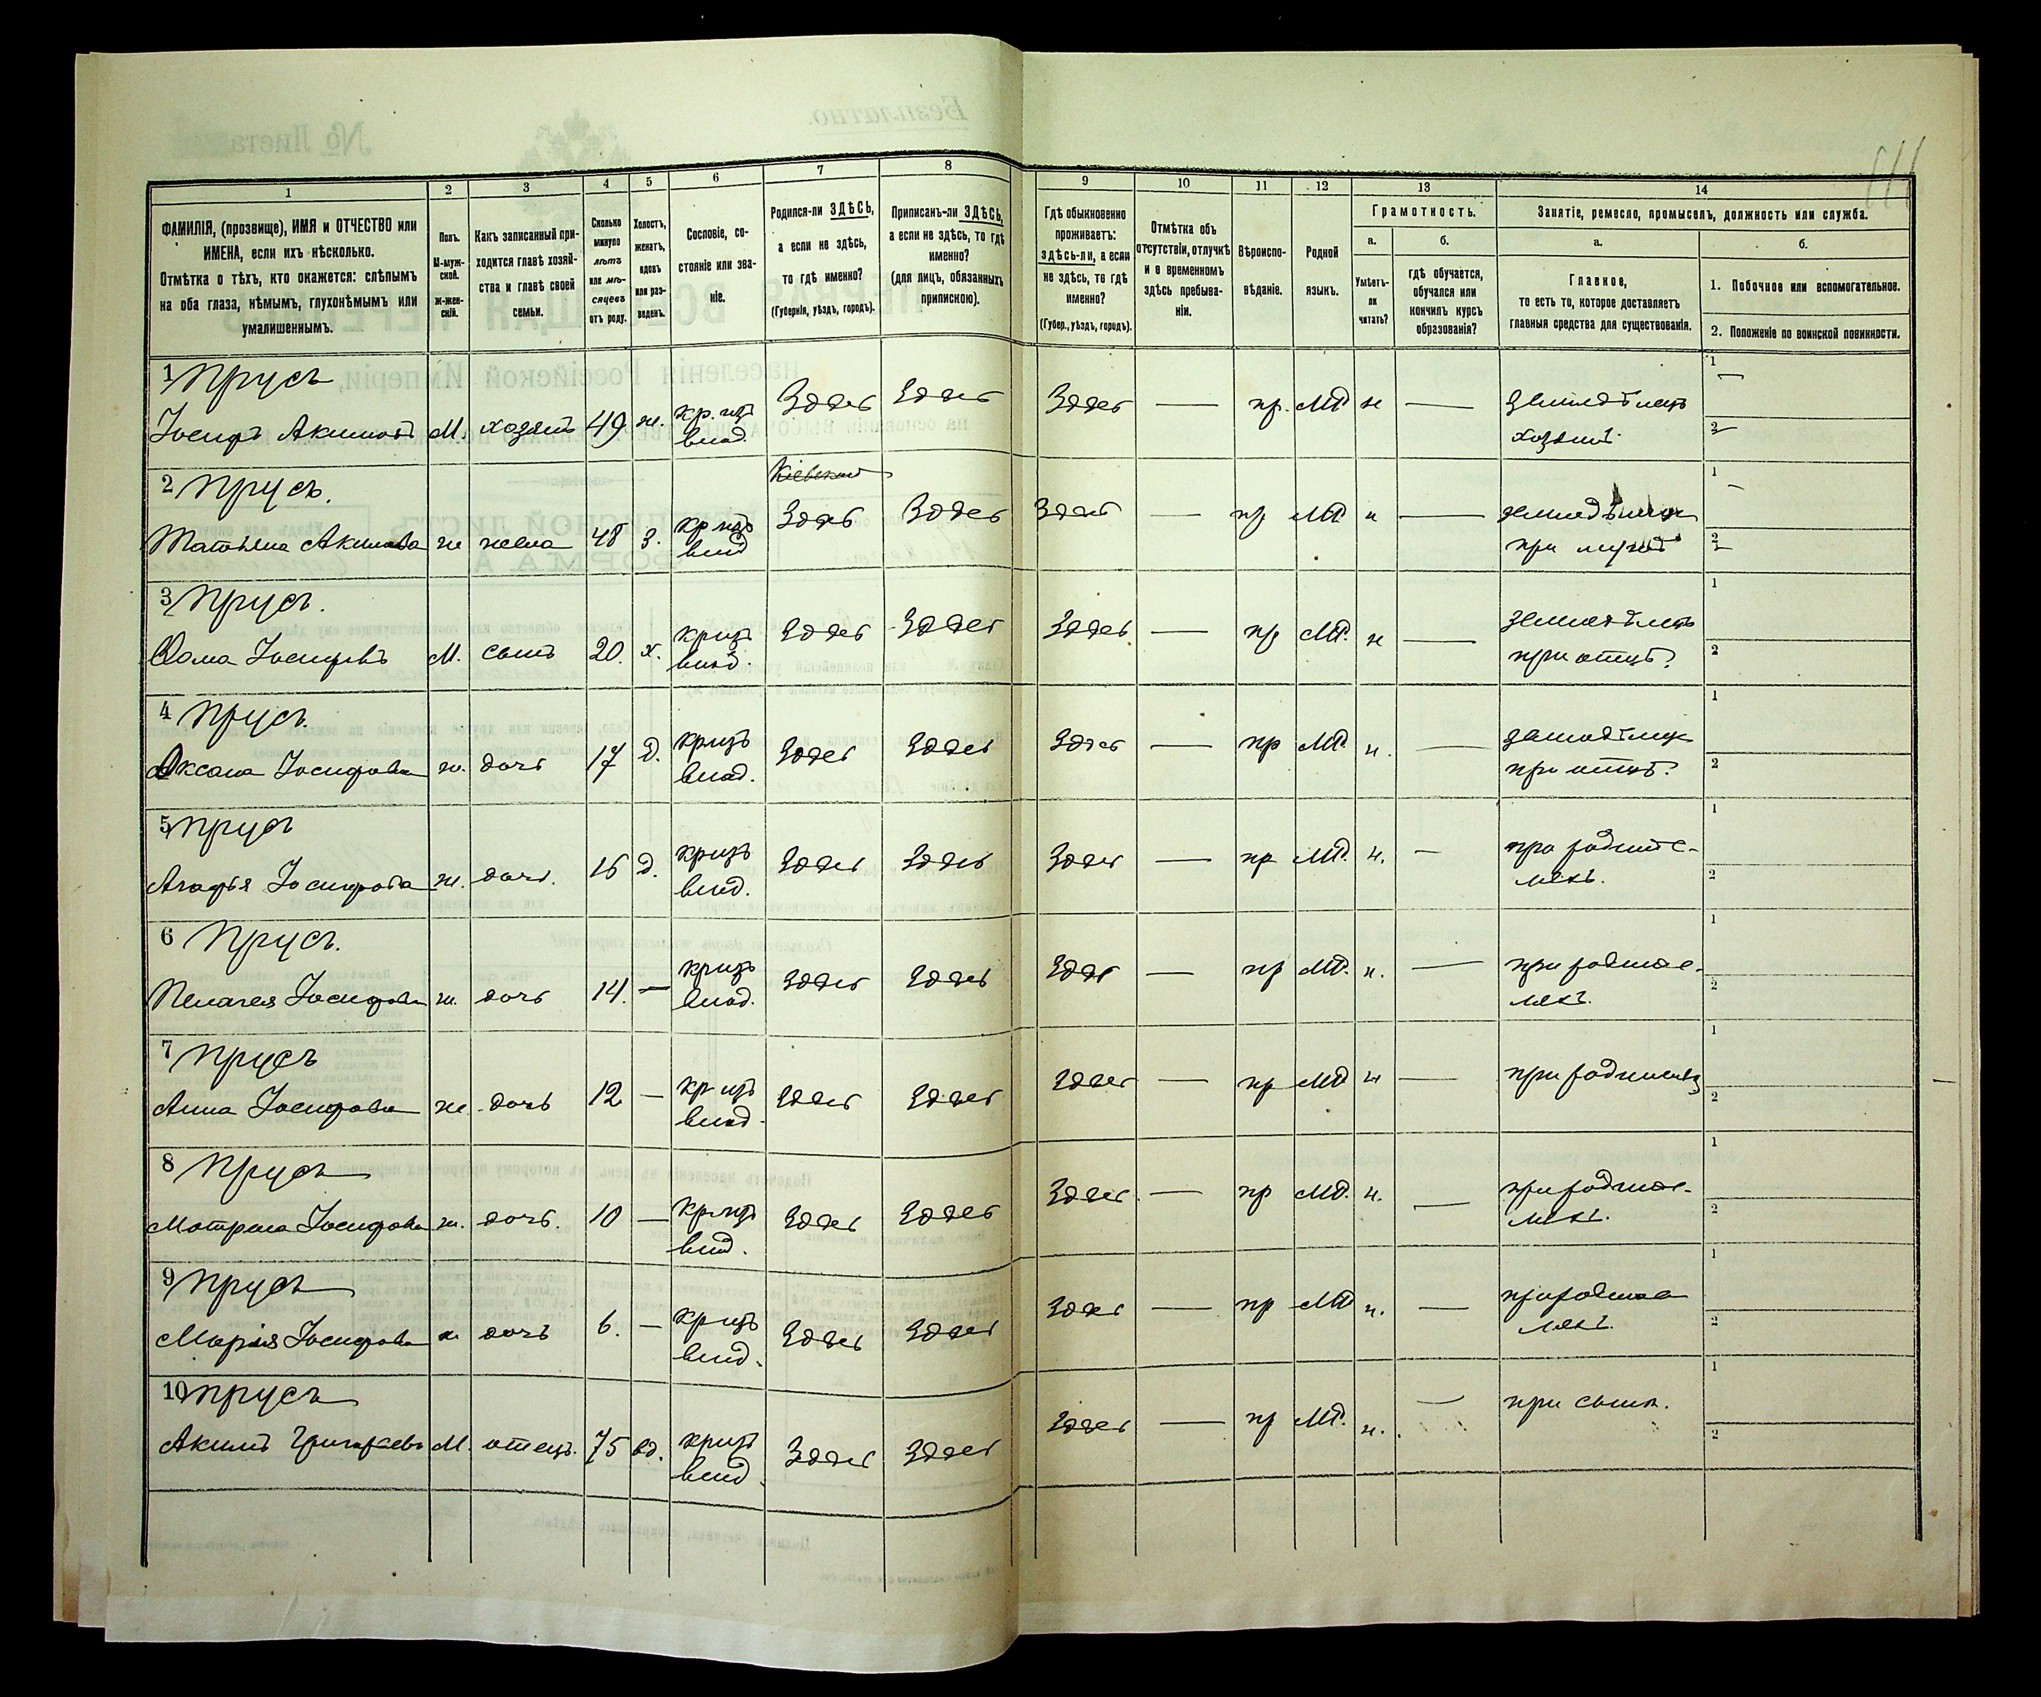 1 2 3 4 5 6 7 8 9 10 11 12 13 14
ФАМИЛІЯ, (прозвище), ИМЯ и ОТЧЕСТВО или
ИМЕНА, если ихъ нѣсколько.
Отмѣтка о тѣхъ, кто окажется: слѣпымъ
на оба глаза, нѣмымъ, глухонѣмымъ или
умалишеннымъ.
Полъ.
М-муж-
ской.
Ж-жен-
скій.
Какъ записанный при-
ходится главѣ хозяй-
ства и главѣ своей
семьи.
Сколько
минуло
лѣтъ
или мѣ-
сяцевъ
отъ роду.
Холостъ,
женатъ,
вдовъ
или раз-
веденъ.
Сословіе, со-
стояніе или зва-
ніе.
Родился-ли ЗДѢСЬ,
а если не здѣсь,
то гдѣ именно?
(Губернія, уѣздъ, городъ).
Приписанъ-ли ЗДѢСЬ,
а если не здѣсь, то гдѣ
именно?
(для лицъ, обязанныхъ
припискою).
Гдѣ обыкновенно
проживаетъ:
здѣсь-ли, а если
не здѣсь, то гдѣ
именно?
(Губер., уѣздъ, городъ).
Отмѣтка объ
отсутствіи, отлучкѣ
и о временномъ
здѣсь пребыва-
ніи.
Вѣроиспо-
вѣданіе.
Родной
языкъ.
Грамотность.
а.
Умѣетъ-
ли
читать?
б.
гдѣ обучается,
обучался или
кончилъ курсъ
образованія?
Занятіе, ремесло, промыселъ, должность или служба.
а.
Главное,
то есть то, которое доставляетъ
главныя средства для существованія.
б.
1. Побочное или вспомогательное.
2. Положеніе по воинской повинности.
1 Прусъ
Іосифъ Акимовъ М. хозяинъ 49 ж. кр. изъ влад. Здѣсь Здѣсь Здѣсь — пр. МР н — земледѣлецъ
хозяинъ 1 — 2 —
Кіевской
2 Прусъ.
Татьяна Акимова ж жена 48 з. кр изъ влад Здѣсь Здѣсь Здѣсь — пр МР н — земледѣлецъ
при мужѣ 1 — 2 —
3 Прусъ.
Ѳома Іосифовъ М. сынъ 20. х. кр изъ влад. Здѣсь Здѣсь Здѣсь — пр МР. н — земледѣлецъ
при отцѣ. 1 2
4 Прусъ.
Оксана Іосифова ж. дочь 17 д. кр изъ влад. Здѣсь Здѣсь Здѣсь — пр МР. н. — земледѣлецъ
при отцѣ. 1 2
5 Прусъ
Агафья Іосифова ж. дочь. д. кр изъ влад. Здѣсь Здѣсь Здѣсь — пр МР. н. — при родите-
ляхъ. 1 2
6 Прусъ.
Пелагея Іосифова ж. дочь 14. — кр изъ влад. Здѣсь Здѣсь Здѣсь — пр МР. н. — при родите-
ляхъ. 1 2
7 Прусъ
Анна Іосифова ж. дочь 12 — кр изъ влад. Здѣсь Здѣсь Здѣсь — пр МР н — при родителяхъ 1 2
8 Прусъ
Мотрона Іосифова ж. дочь. 10 — кр. изъ влад. Здѣсь Здѣсь Здѣсь — пр МР. н. — при родите-
ляхъ. 1 2
9 Прусъ
Марія Іосифова ж дочь 6. — кр изъ влад. Здѣсь Здѣсь Здѣсь — пр МР н. — при родите
ляхъ. 1 2
10 Прусъ
Акимъ Григорьевъ М. отецъ. 75 вд. кр изъ влад. Здѣсь Здѣсь Здѣсь — пр МР. н. — при сынѣ. 1 2